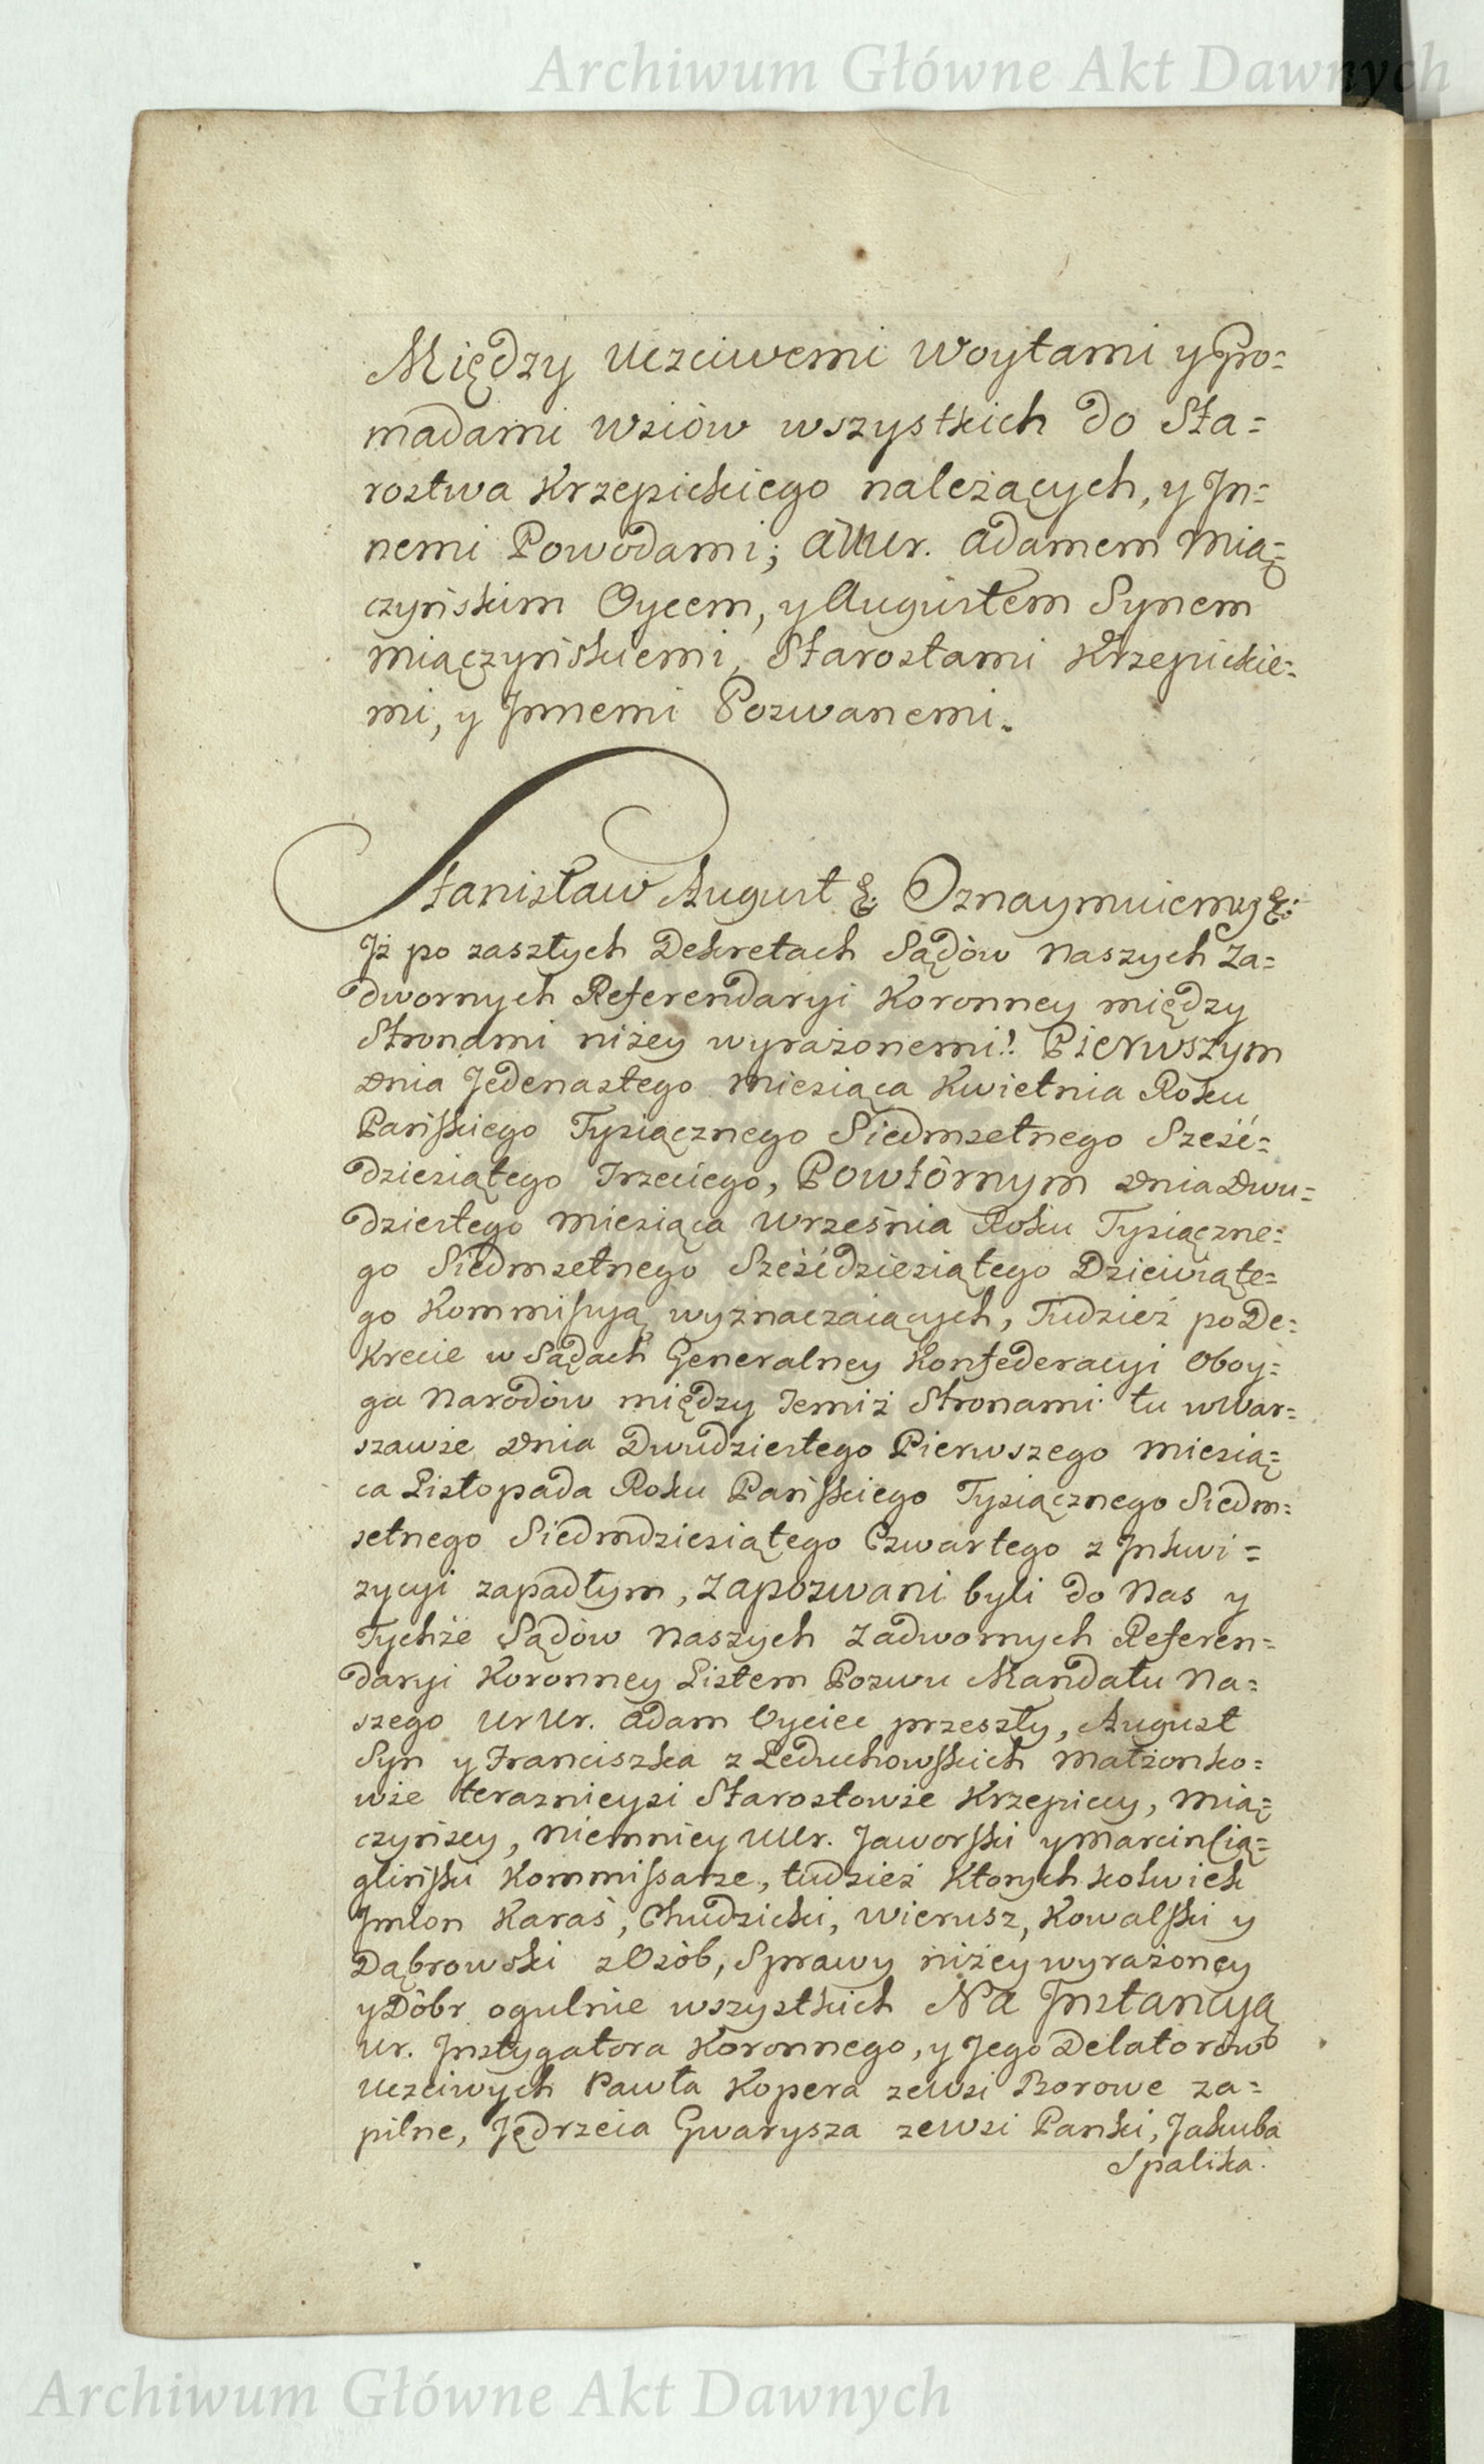 Archiwum Główne Akt Dawnych
Między Uczciwemi Woytami y Gro=
madami Wsiów wszystkich do Sta=
rostwa Krzepickiego należących, y In=
nemi Powodami; a UUr. Adamem Mią=
czyńskim Oycem, y Augustem Synem
Miączyńskiemi, Starostami Krzepickie=
mi, y Innemi Pozwanemi.
Stanisław August &: Oznaymuiemy &:
Iż po zaszłych Dekretach Sądów Naszych Za=
dwornych Referendaryi Koronney między
Stronami niżey wyrażonemi: Pierwszym
Dnia Jedenastego Miesiąca Kwietnia Roku
Pańskiego Tysiącznego Siedmsetnego Sześć=
dziesiątego Trzeciego, Powtórnym Dnia Dwu=
dziestego Miesiąca Września Roku Tysiączne=
go Siedmsetnego Sześćdziesiątego Dziewiąte=
go Kommissyą wyznaczaiących, Tudzież po De=
krecie w Sądach Generalney Konfederacyi Oboy=
ga Narodów między Temiż Stronami tu w War=
szawie Dnia Dwudziestego Pierwszego Miesią=
ca Listopada Roku Pańskiego Tysiącznego Siedm=
setnego Siedmdziesiątego Czwartego z Inkwi=
zycyi zapadłym, Zapozwani byli do Nas y
Tychże Sądów Naszych Zadwornych Referen=
daryi Koronney Listem Pozwu Mandatu Na=
szego UrUr. Adam Oyciec przeszły, August
Syn y Franciszka z Leduchowskich Małżonko=
wie teraznieysi Starostowie Krzepiccy, Mią=
czyńscy, Niemniey UUr. Jaworski y Marcin Cią=
gliński Kommissarze, tudzież Których kolwiek
Imion Karaś, Chudzicki, Wierusz, Kowalski y
Dąbrowski z Osób, Sprawy niżey wyrażoney
y Dóbr ogulnie wszystkich Na Instancyą
Ur. Instygatora Koronnego, y Jego Delatorów
Uczciwych Pawła Kopera ze Wsi Borowe za=
pilne, Jędrzeia Gwarysza ze Wsi Panki, Jakuba
Spalika.
Archiwum Główne Akt Dawnych